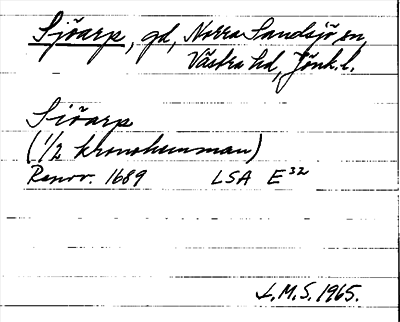 Sjöarp, gd, Norra Sandsjö sn,
Västra hd, Jönk.l.
Siöarp
(1/2 kronohemman)
Renov. 1689 LSA E³²
L.M.S. 1965.